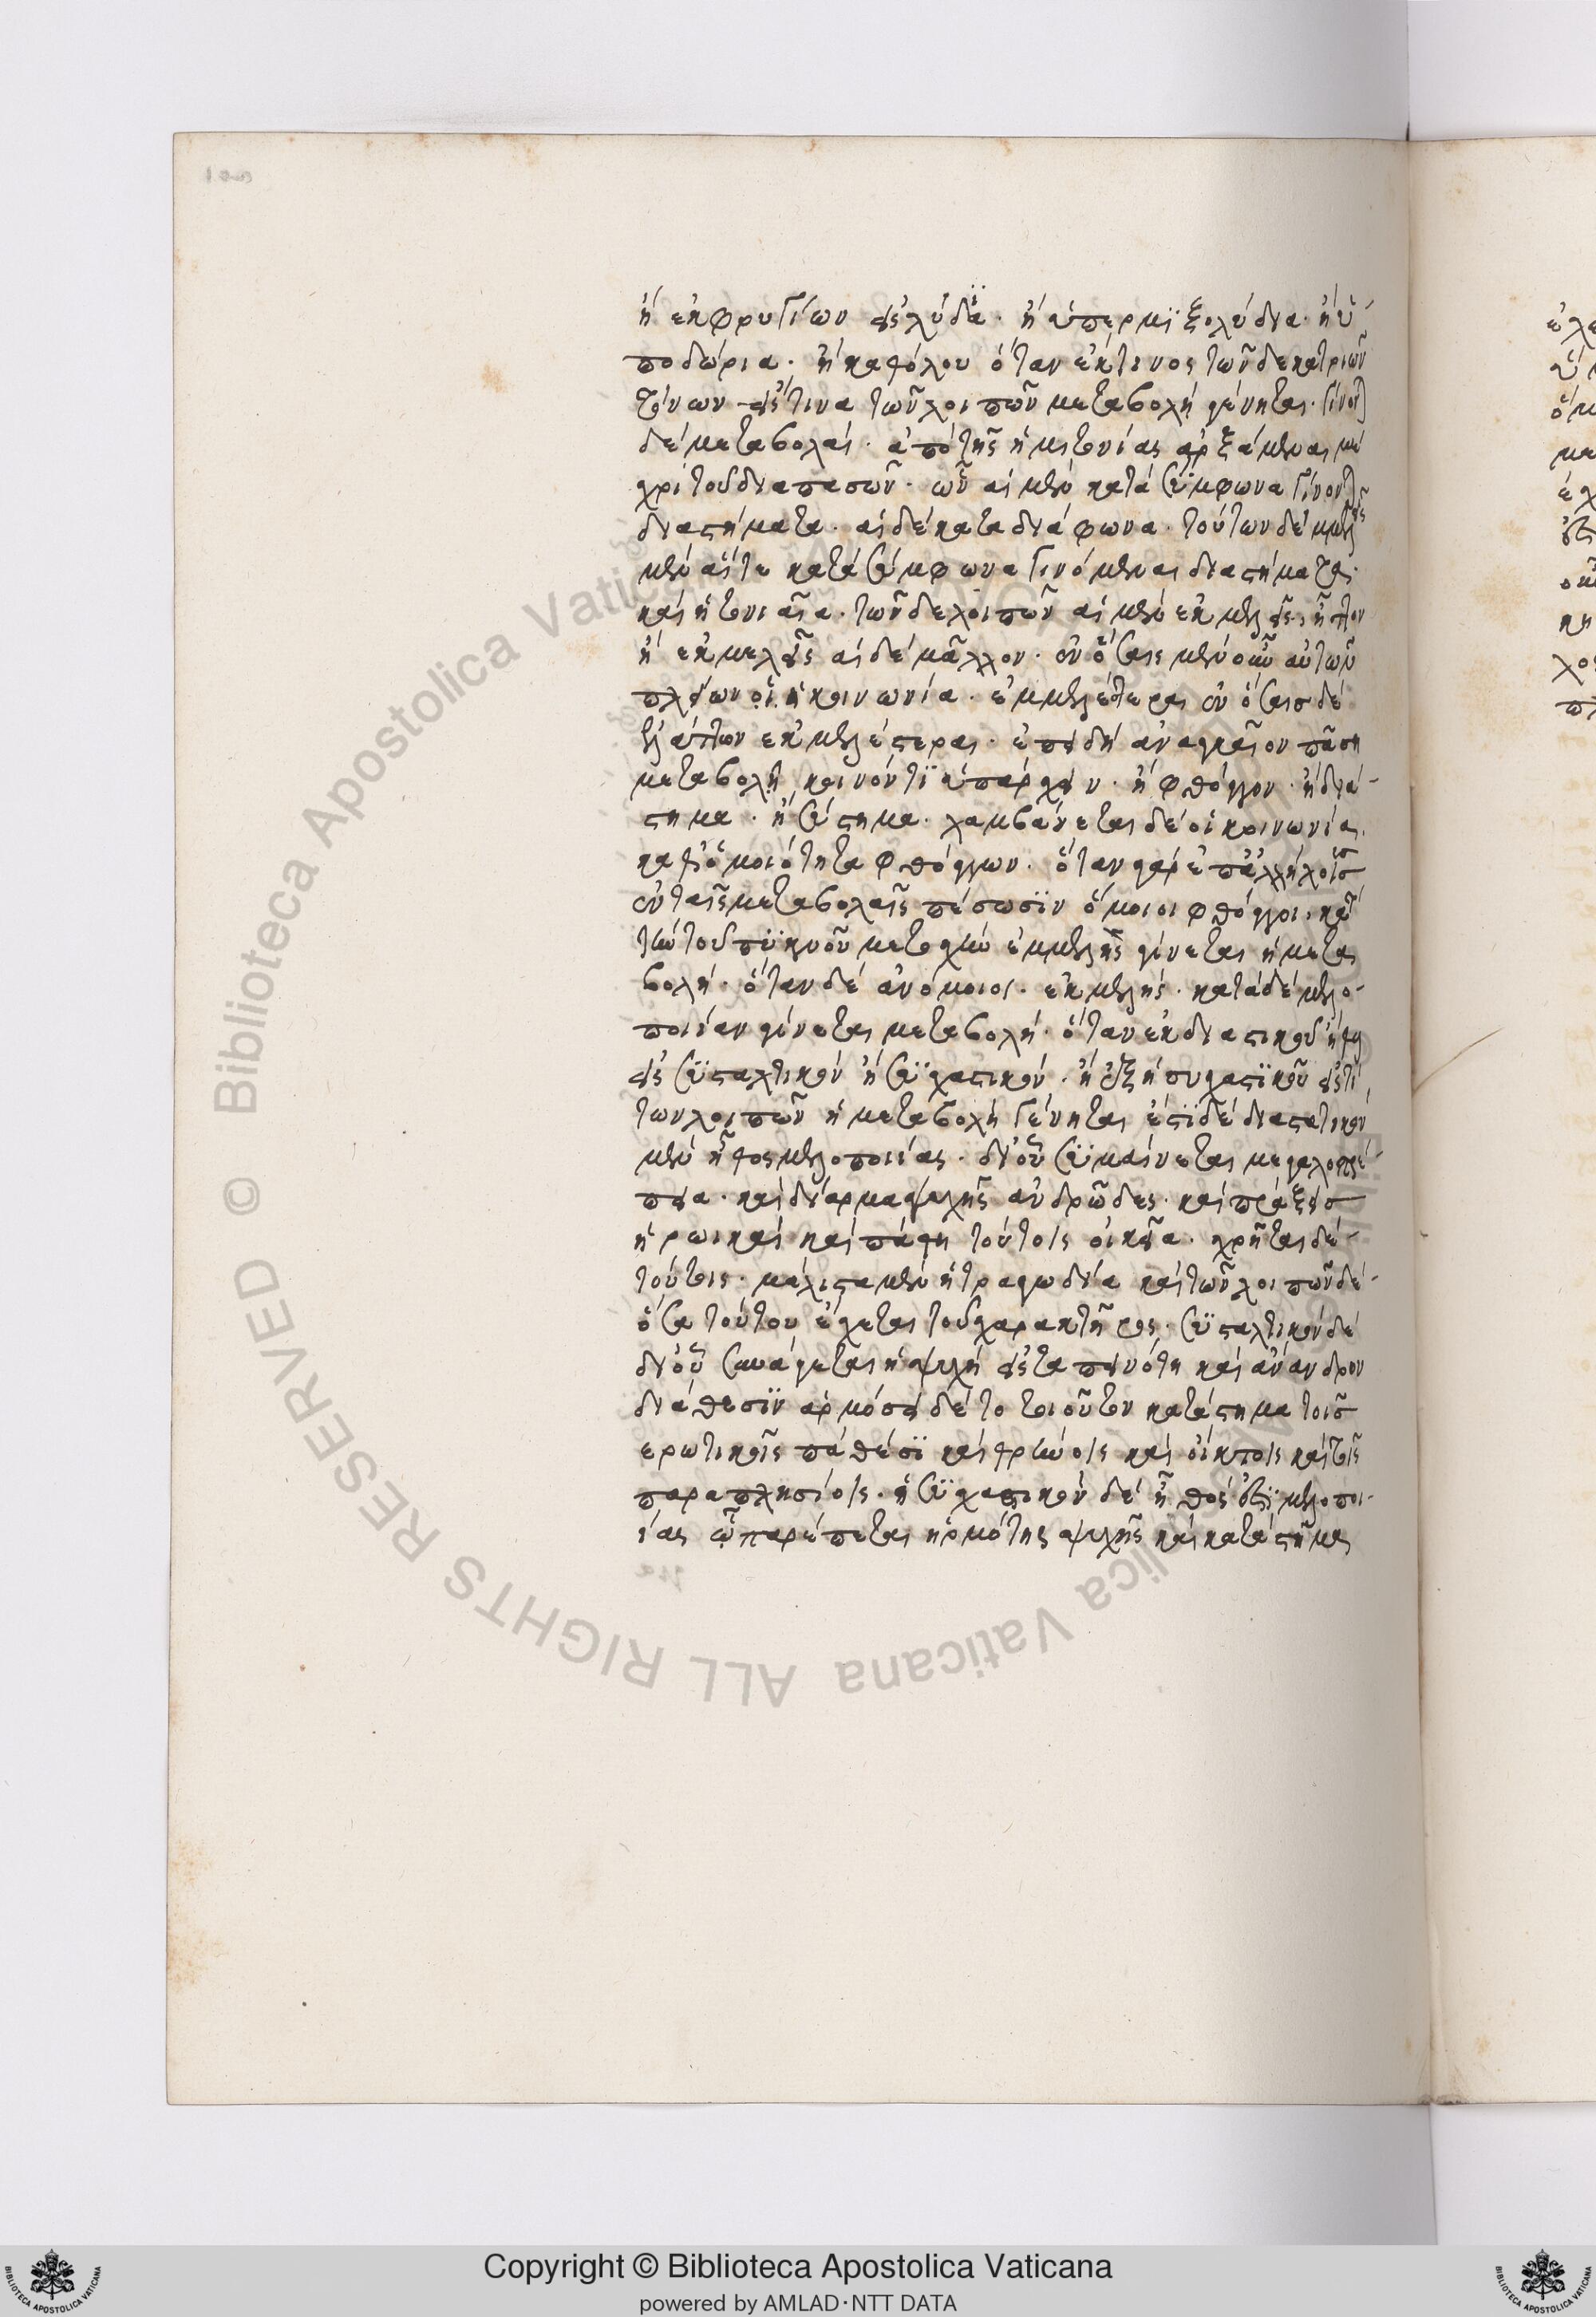 ἢ ἐκ φρυγίων εἰς λύδια. ἢ ὑπερμιξολύδια. ἢ ὑ-
ποδώρια. ἢ καθόλου ὅταν ἔκ τινος τῶν δεκατριῶν
τόνων εἴς τινα τῶν λοιπῶν μεταβολὴ γένηται. γίνονται
δὲ μεταβολαὶ. ἀπὸ τῆς ἡμιτονίας ἀρξάμεναι μέ
χρι τοῦ διαπασῶν. ὧν αἱ μὲν κατὰ σύμφωνα γίνονται
διαστήματα. αἱ δὲ κατὰ διάφωνα. τούτων δὲ ἐμμελεῖς
μὲν αἵ τε κατὰ σύμφωνα γινόμεναι διαστήματα.
καὶ ἡ τονιαία. τῶν δὲ λοιπῶν αἱ μὲν ἐκμελεῖς. ἧττον
ἢ ἐκμελεῖς αἱ δὲ μᾶλλον. ἐν ὅσαις μὲν οὖν αὐτῶν
πλείων ἡ κοινωνία. ἐμμελέτεραι ἐν ὅσαισ δὲ
ἐλάττων ἐκμελέστεραι. ἐπειδὴ ἀναγκαῖον πάση
μεταβολῇ κοινόν τι ὑπάρχειν. ἢ φθόγγον. ἢ διά-
στημα. ἢ σύστημα. λαμβάνεται δὲ οἱ κοινωνία.
καθ' ὁμοιότητα φθόγγων. ὅταν γὰρ ἐπ' ἀλλήλοισ
ἐν ταῖς μεταβολαῖς πέσωσιν ὅμοιοι φθόγγοι. κατὰ
τὴν τοῦ πυκνοῦ μετοχὴν ἐμμελὴς γίνεται ἡ μετα
βολή. ὅταν δὲ ἀνόμοιοι. ἐκμελής. κατὰ δὲ μελο-
ποιίαν γίνεται μεταβολή. ὅταν ἐκ διαστικοῦ ἤθη
εἰς συσταλτικὸν ἢ συχαστικόν. ἢ ἐξ ἡσυχαστικοῦ εἴς τι
τῶν λοιπῶν ἡ μεταβολὴ γένηται ἔστι δὲ διαστατικὸν
μὲν ἦθος μελοποιίας. δι' οὗ συμαίνεται μεγαλοπρέ-
πεια. καὶ δίαρμα ψυχῆς ἀνδρῶδες. καὶ πράξεισ
ἡρωικαὶ καὶ πάθη τούτοις οἰκεῖα. χρῆται δὲ-
τούτοις. μάλιστα μὲν ἡ τραγωδία καὶ τῶν λοιπῶν δὲ-
ὅσα τούτου ἔχεται τοῦ χαρακτῆρος. συσταλτικὸν δὲ
δι' οὗ συνάγεται ἡ ψυχὴ εἰς ταπεινότη καὶ ἄνανδρον
διάθεσιν ἁρμόσει δὲ το τοιοῦτον κατάστημα τοισ
ἐρωτικοῖς πάθεσι καὶ θρήνοις καὶ οἴκτοις καὶ τοῖς
παραπλησίοις. ἡ συχαστικὸν δὲ ἦθός ἐστι μελοποι-
ίας ᾧ παρέπεται ἠρμότης ψυχῆς καὶ κατάστημα
Copyright © Biblioteca Apostolica Vaticana
powered by AMLAD·NTT DATA